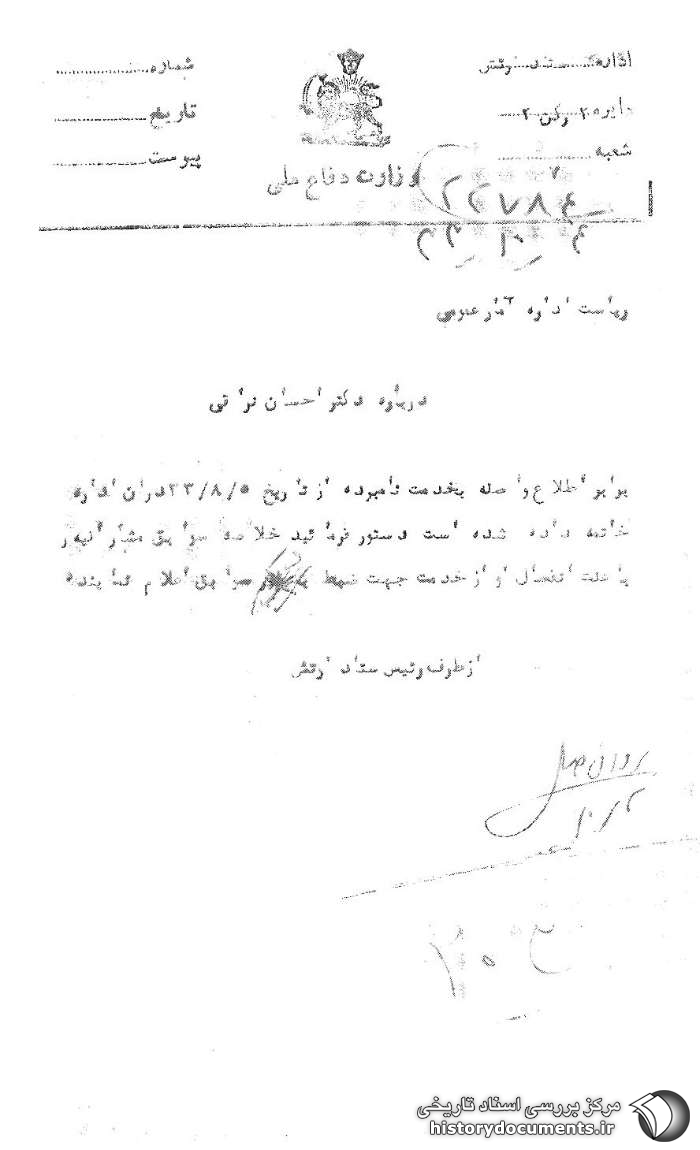 اداره ستاد ارتش
دایره ۲ رکن ۲
شعبه
شماره
تاریخ
پیوست
وزارت دفاع ملی
ریاست اداره آمار عمومی
درباره دکتر احسان نراقی
بنابر اطلاع واصله بخدمت نامبرده از تاریخ ۲۳/۸/۵ دران اداره
خاتمه داده شده است دستور فرمائید خلاصه سوابق مشارالیه را
با علت انفصال او از خدمت جهت ضبط سوابق اعلام نمایند
ازطرف رئیس ستاد ارتش
مرکز بررسی اسناد تاریخی
historydocuments.ir